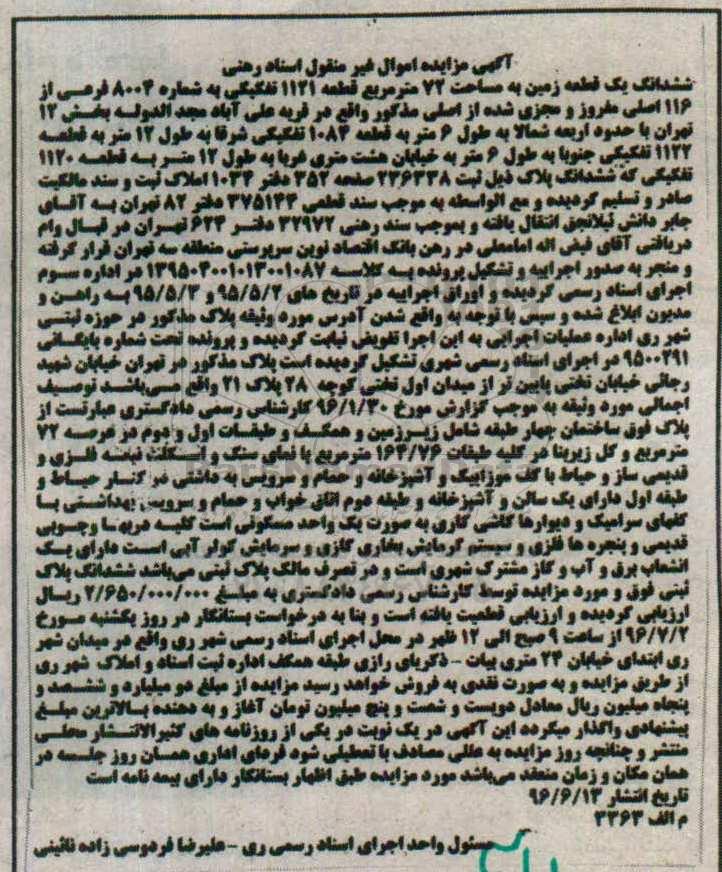 آگهی مزایده اموال غیر منقول اسناد رهنی
ششدانگ یک قطعه زمین به مساحت ۷۲ مترمربع قطعه ۱۱۲۱ تفکیکی به شماره ۸۰۰۴ فرعی از
۱۱۶ اصلی مفروز و مجزی شده از اصلی مذکور واقع در قریه علی آباد مجد الدوله بخش ۱۲
تهران با حدود اربعه شمالا به طول ۶ متر به قطعه ۱۰۸۴ تفکیکی شرقا به طول ۱۲ متر به قطعه
۱۱۲۲ تفکیکی جنوبا به طول ۶ متر به خیابان هشت متری غربا به طول ۱۲ متر به قطعه ۱۱۲۰
تفکیکی که ششدانگ پلاک ذیل ثبت ۲۳۶۳۳۸ صفحه ۳۵۲ دفتر ۱۰۳۴ املاک ثبت و سند مالکیت
صادر و تسلیم گردیده و مع الواسطه به موجب سند قطعی ۳۷۵۱۴۴ دفتر ۸۲ تهران به آقای
جابر دانش ئیلانجق انتقال یافته و بموجب سند رهنی ۳۲۹۷۲ دفتر ۶۲۴ تهران در قبال وام
دریافتی آقای فیض اله امامعلی در رهن بانک اقتصاد نوین سرپرستی منطقه سه تهران قرار گرفته
و منجر به صدور اجراییه و تشکیل پرونده به کلاسه ۱۳۹۵۰۴۰۰۱۰۱۳۰۰۱۰۸۷ در اداره سوم
اجرای اسناد رسمی گردیده و اوراق اجراییه در تاریخ های ۹۵/۵/۲ و ۹۵/۵/۳ به راهن و
مدیون ابلاغ شده و سپس با توجه به واقع شدن آدرس مورد وثیقه پلاک مذکور در حوزه ثبتی
شهر ری اداره عملیات اجرایی به این اجرا تفویض نیابت گردیده و پرونده تحت شماره بایگانی
۹۵۰۰۲۹۱ در اجرای اسناد رسمی شهری تشکیل گردیده است پلاک مذکور در تهران خیابان شهید
رجائی خیابان تختی پایین تر از میدان اول تختی کوچه ۲۸ پلاک ۲۱ واقع می‌باشد توصیف
اجمالی مورد وثیقه به موجب گزارش مورخ ۹۶/۱/۳۰ کارشناس رسمی دادگستری عبارتست از
پلاک فوق ساختمان چهار طبقه شامل زیرزمین و همکف و طبقات اول و دوم در عرصه ۷۲
مترمربع و کل زیربنا در کلیه طبقات ۱۶۴/۷۶ مترمربع با نمای سنگ و اسکلت نیمه فلزی و
قدیمی ساز و حیاط با کف موزاییک و آشپزخانه و حمام و سرویس به داشتی در کنار حیاط و
طبقه اول دارای یک سالن و آشپزخانه و طبقه دوم اتاق خواب و حمام و سرویس بهداشتی با
کفهای سرامیک و دیوارها کاشی کاری به صورت یک واحد مسکونی است کلیه دربها وچوبی
قدیمی و پنجره ها فلزی و سیستم گرمایش بخاری گازی و سرمایش کولر آبی است دارای یک
انشعاب برق و آب و گاز مشترک شهری است و در تصرف مالک پلاک ثبتی می‌باشد ششدانگ پلاک
ثبتی فوق و مورد مزایده توسط کارشناس رسمی دادگستری به مبلغ ۲/۶۵۰/۰۰۰/۰۰۰ ریال
ارزیابی گردیده و ارزیابی قطعیت یافته است و بنا به درخواست بستانکار در روز یکشنبه مورخ
۹۶/۷/۲ از ساعت ۹ صبح الی ۱۲ ظهر در محل اجرای اسناد رسمی شهر ری واقع در میدان شهر
ری ابتدای خیابان ۲۴ متری بیات - ذکریای رازی طبقه همکف اداره ثبت اسناد و املاک شهر ری
از طریق مزایده و به صورت نقدی به فروش خواهد رسید مزایده از مبلغ دو میلیارد و ششصد و
پنجاه میلیون ریال معادل دویست و شصت و پنج میلیون تومان آغاز و به دهنده بالاترین مبلغ
پیشنهادی واگذار میگردد این آگهی در یک نوبت در یکی از روزنامه های کثیرالانتشار محلی
منتشر و چنانچه روز مزایده به عللی مصادف با تعطیلی شود فردای اداری همان روز جلسه در
همان مکان و زمان منعقد می‌باشد مورد مزایده طبق اظهار بستانکار دارای بیمه نامه است
تاریخ انتشار ۹۶/۶/۱۳
م الف ۳۳۶۳
مسئول واحد اجرای اسناد رسمی ری - علیرضا فردوسی زاده نائینی